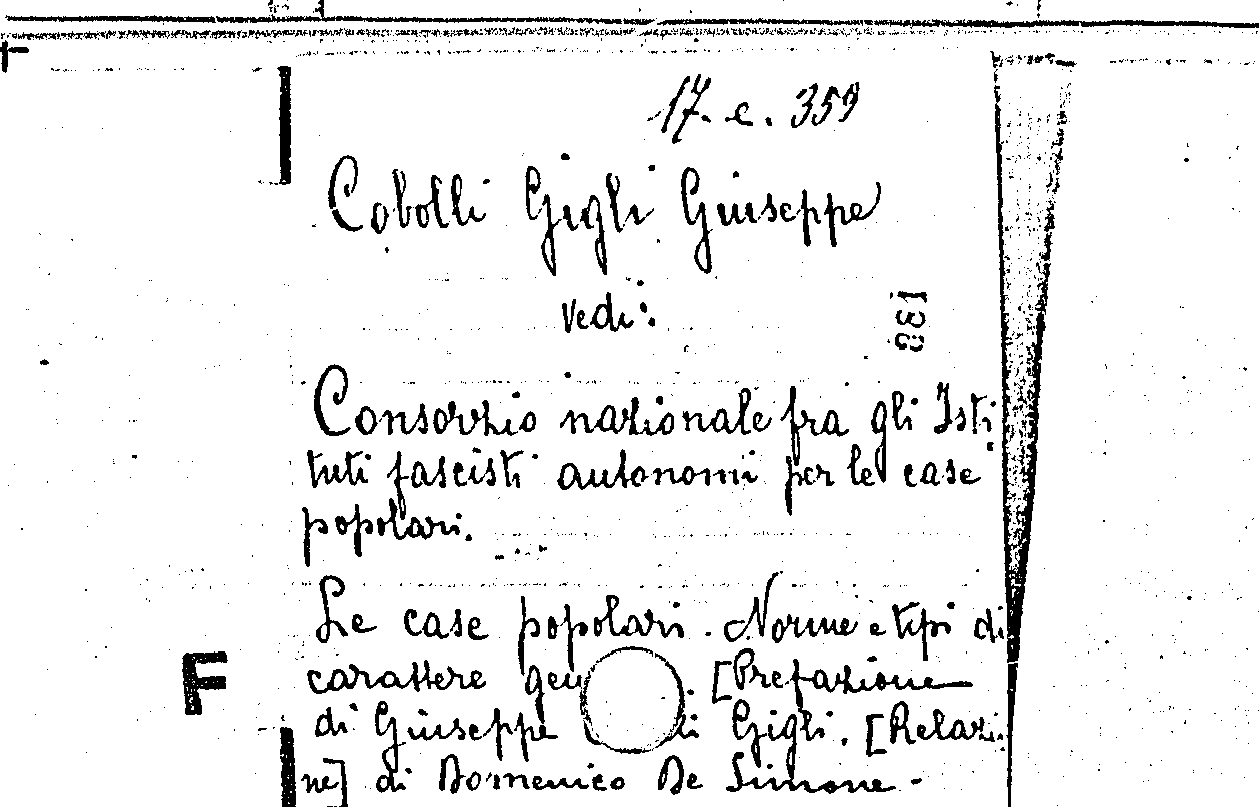 17. e. 359
Cobolli Gigli Giuseppe
vedi:
188
Consorzio nazionale fra gli Isti
tuti fascisti autonomi per le case
popolari.
Le case popolari. Norme e tipi di
F
carattere gen . [Prefazione
di Giuseppe li Gigli. [Relazio
ne] di Domenico De Simone -